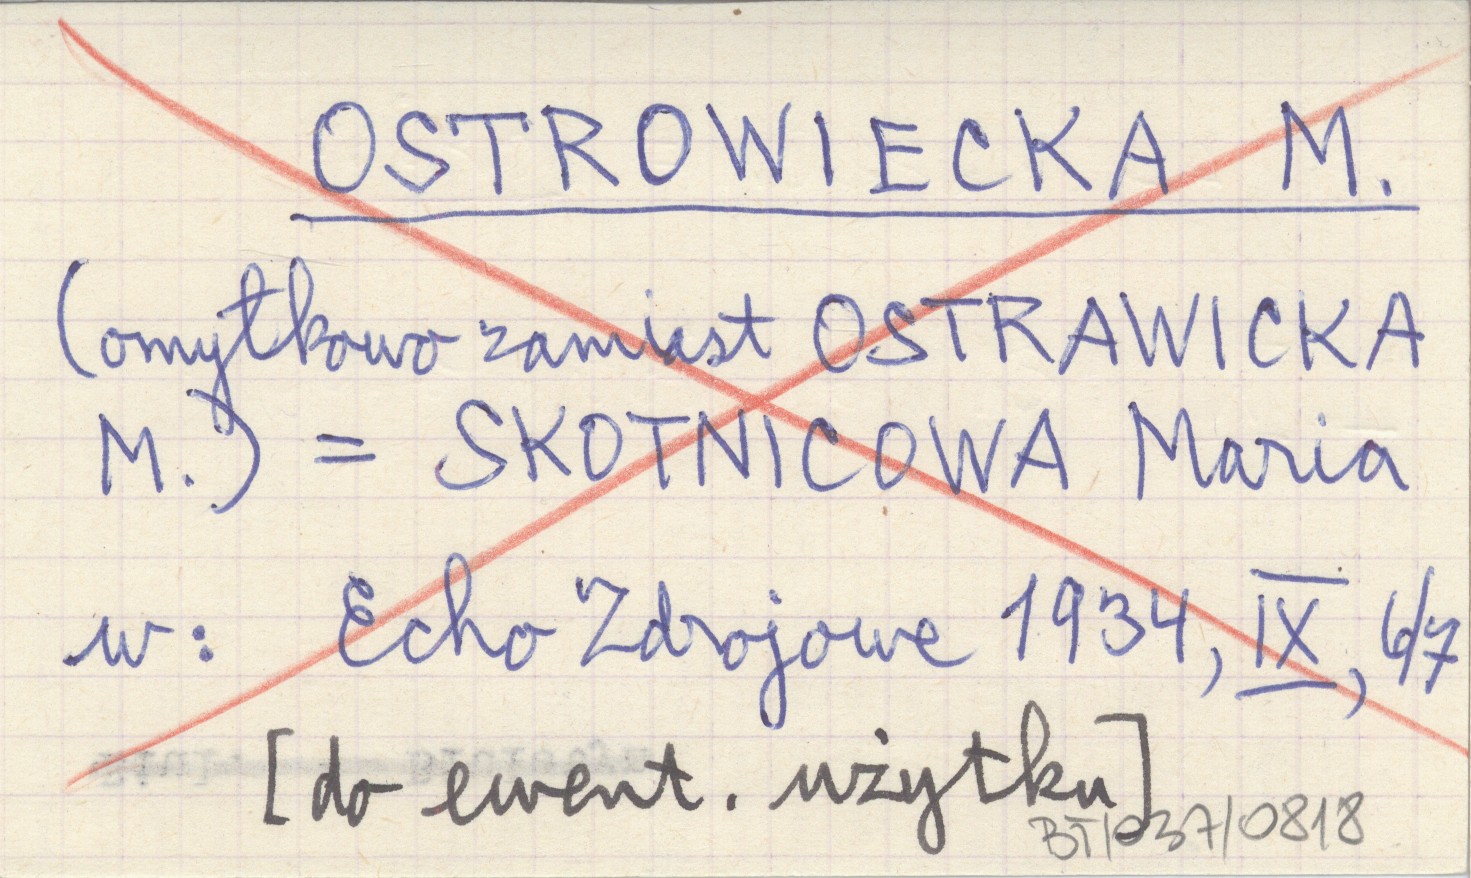 OSTROWIECKA M.
(omyłkowo zamiast OSTRAWICKA
M.) = SKOTNICOWA Maria
w: Echo Zdrojowe 1934, IX, 6/7
[do ewent. użytku]
BT/037/0818